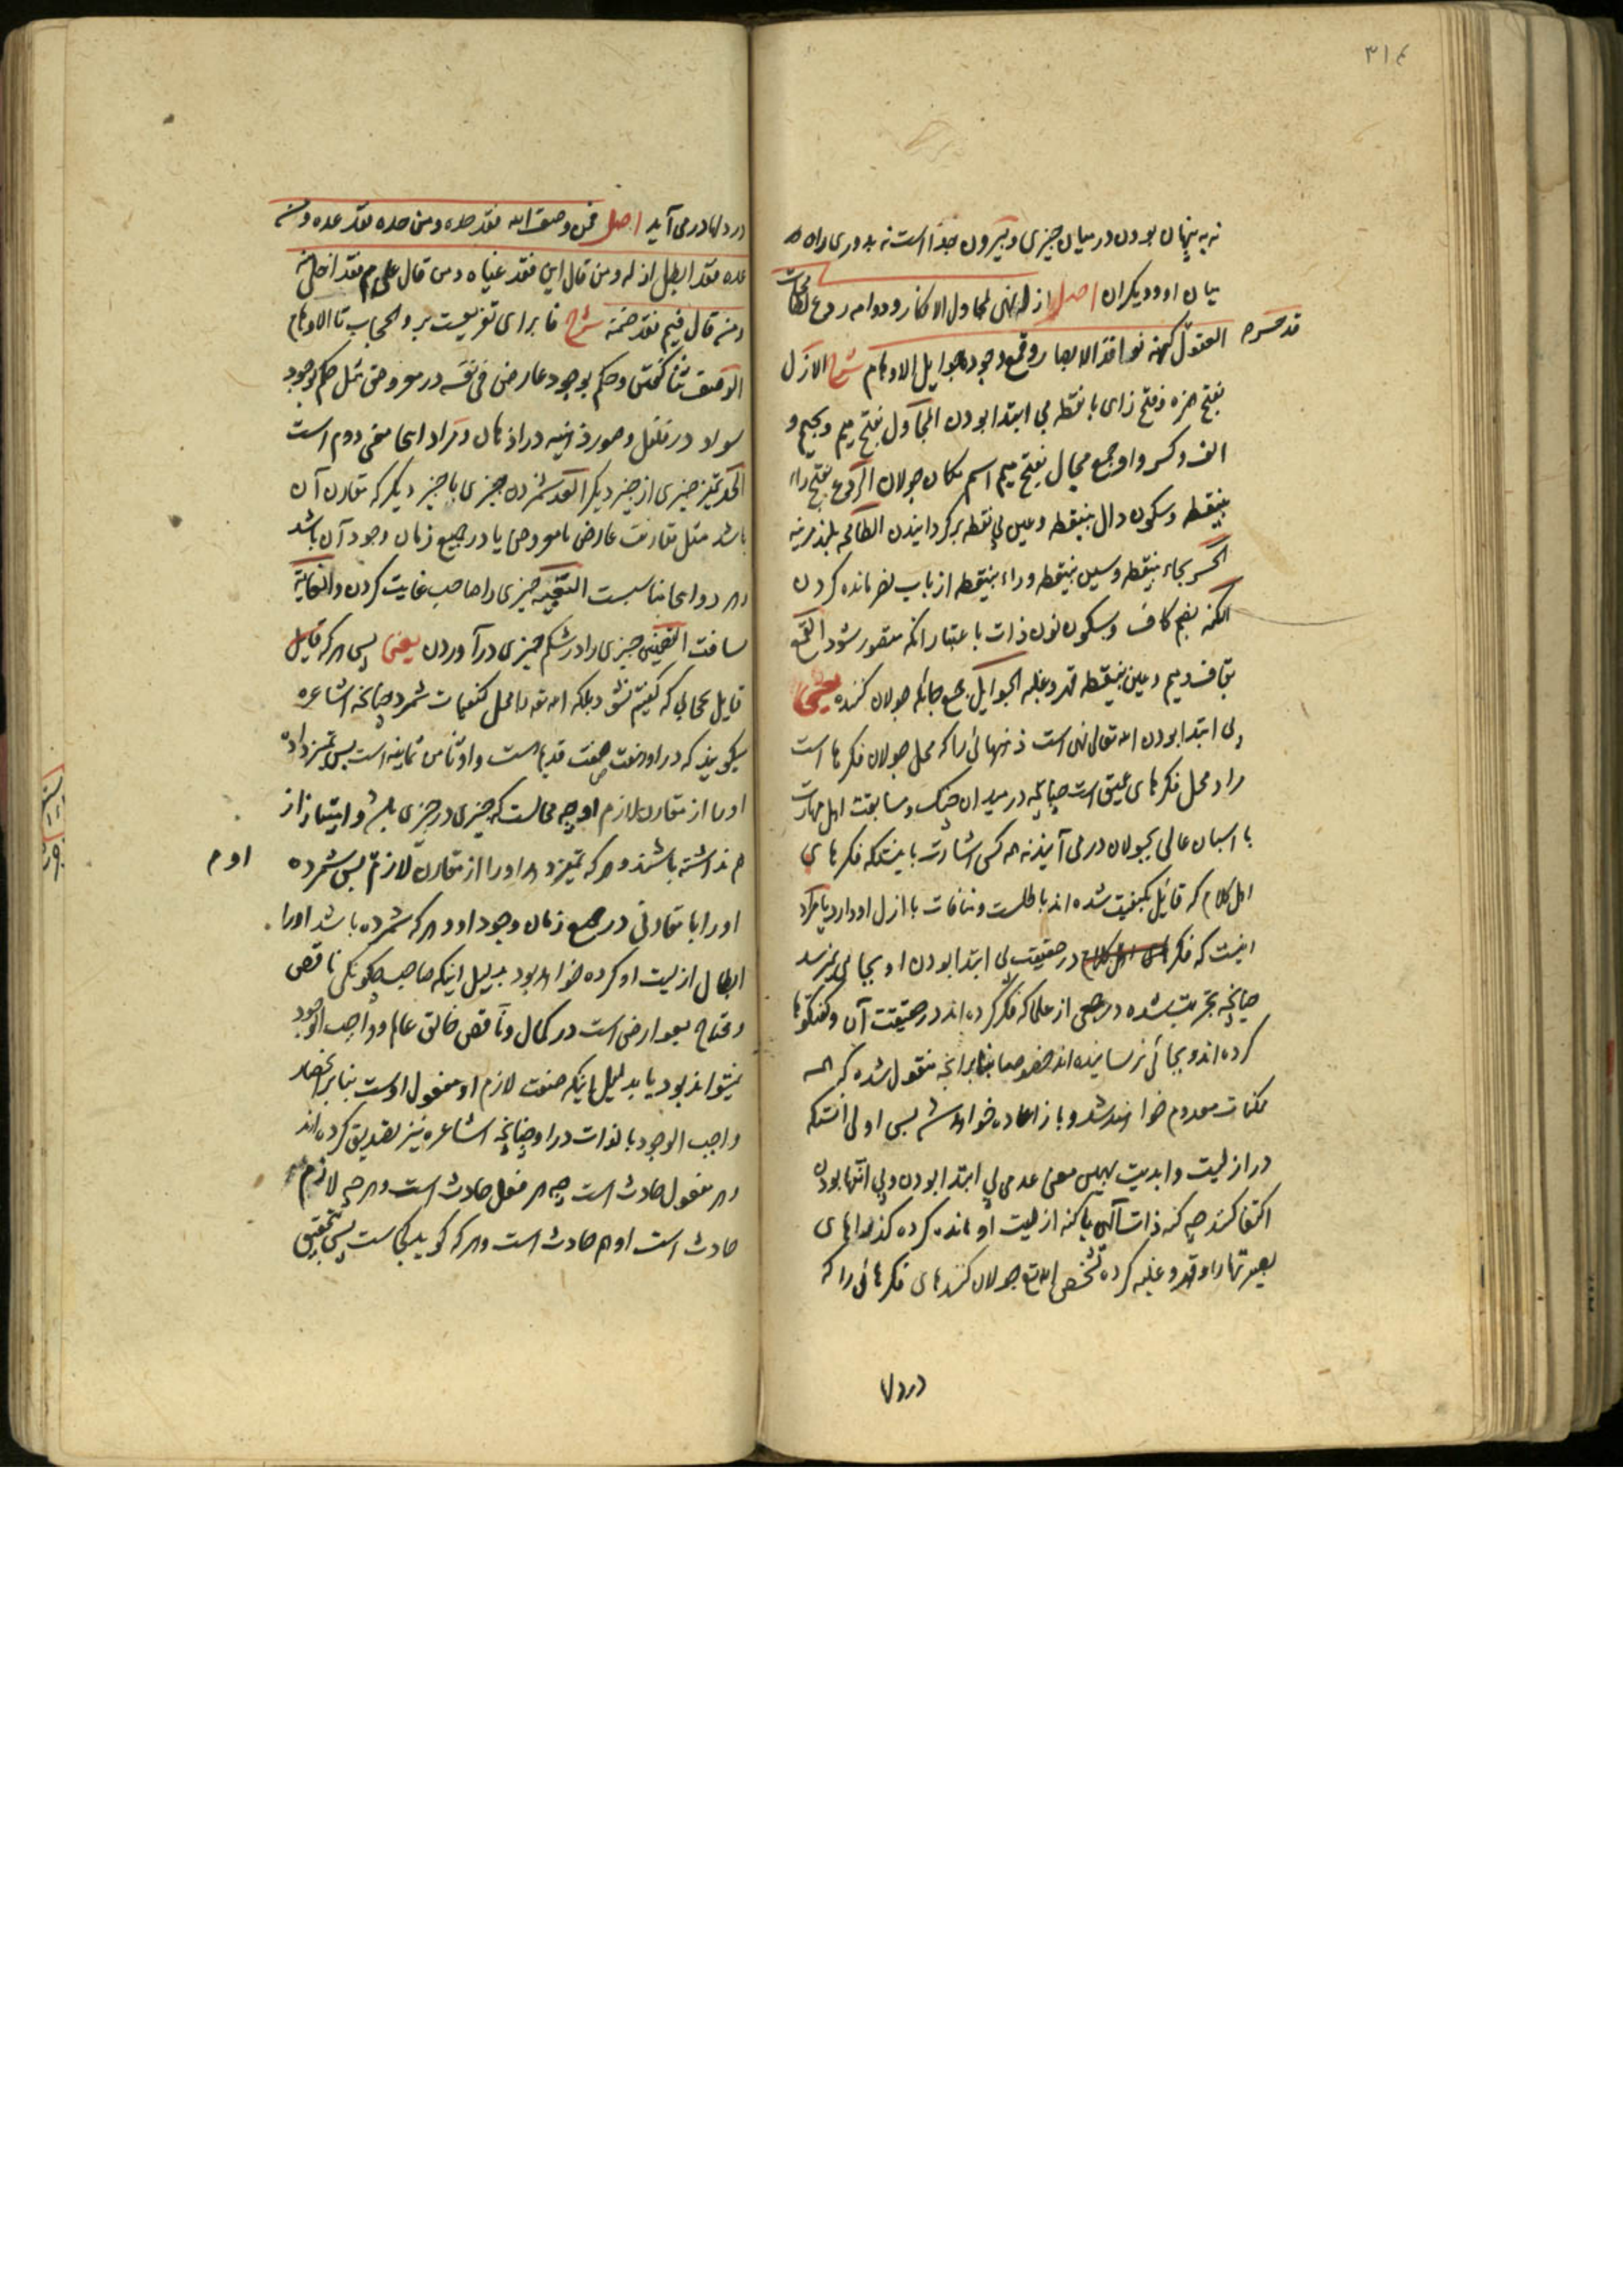 ٣١٤
نه به پنهان بودن در میان چیزی و بیرون جدا است نه بدوری راه
میان او و دیکران اصل ازله نهی لمجاول الافکار و دوامه ردع لطامحات
العقول قد حسر کنهه نوافذ الابصار و قمع وجوده جوایل الاوهام شرح الازل
بفتح همزه و فتح زای با نقطه بی ابتدا بودن المجاول بفتح میم و جیم و
الف و کسر واو جمع مجال بفتح میم اسم مکان جولان الردع بفتح راء
بینقطه و سکون دال بینقطه و عین بی نقطه برکردانیدن الطامحه بلند مرتبه
الحسر بحاء بینقطه و سین بینقطه و راء بینقطه از باب نصر مانده کردن
الکنه بضم کاف و سکون نون ذات با عتبار انکه متصور شود القمع
بقاف و میم و عین بینقطه قهر و غلبه الجوایل جمع جائله جولان کننده یعنی
بی ابتدا بودن الله تعالی نهی است ذهنهائی را که محل جولان فکرها است
مراد محل فکرهای عمیق است چنانچه در میدان جنک و مسابقت اهل مهارت
با اسبان عالی بجولان در می آیند نه هر کس اشارت باینکه فکرهای
اهل کلام که قائل بکیفیت شده اند باطلست و منافات با ازل او دارد یا مراد
اینست که فکر در حقیقت بی ابتدا بودن او بجایی نمیرسد
چنانچه تجربت شده در جمعی از علما که فکر کرده اند در حقیقت آن و کفتکوها
کرده اند و بجائی نرسانیده اند خصوصا بنابر انچه منقول شده که همه
ممکنات معدوم خواهند شد و باز اعاده خواهد شد پس اولی انستکه
در ازلیت و ابدیت بهمین معنی عدمی بی ابتدا بودن و بی انتها بودن
اکتفا کنند چه کنه ذات الهی یا کنه ازلیت او مانده کرده کذراهای
بصیرتها را و قهر و غلبه کرده تشخص الله تع جولان کنندهای فکرهائی را که
در دلها
در دلها در می آید اصل فمن وصف الله فقد حده و من حده فقد عده و من
عده فقد ابطل ازله و من قال این فقد غیاه و من قال علی م فقد اخلی منه
و من قال فیم فقد ضمنه شرح فا برای تفریعست بر و الحجاب تا الاوهام
الوصف ثنا کفتن و حکم بوجود عارض فی نفسه در معروضی مثل حکم بوجود
سواد در فلفل و صور ذهنیه در اذهان و مراد اینجا معنی دوم است
الحد تمیز چیزی از چیز دیکر العد شمردن چیزی با چیز دیکر که مقارن آن
باشد مثل مقارنت عارض با معروض یا در جمیع زمان وجود آن باشد
و هر دو اینجا مناسبست التغییه چیزی را صاحب غایت کردن و الغایة
مسافت التضمین چیزی را در شکم چیزی درآوردن یعنی پس هر که قایل
قایل بحجابی که کفتیم نشود بلکه الله تع را محل کیفیات شمرد چنانچه اشاعره
میکویند که در او هفت صفت قدیم است و او ثامن ثمانیه است پس تمیز داده
او را از مقارن لازم او چه محالست که چیزی در چیزی باشد و امتیاز از
هم نداشته باشند و هر که تمیز دهد او را از مقارن لازم پس شمرده او را
او را با مقارنی در جمیع زمان وجود او و هر که شمرده باشد او را
ابطال ازلیت او کرده خواهد بود بدلیل اینکه صاحب چکونکی ناقص
و محتاج بعوارض است در کمال و ناقص خالق عالم و واجب الوجود
نمیتواند بود یا بدلیل اینکه صفت لازم او مفعول اوست بنابر انحصار
واجب الوجود بالذات در او چنانچه اشاعره نیز تصدیق کرده اند
و هر مفعول حادث است چه هر فعل حادث است و هر چه لازم
حادث است او هم حادث است و هر که کوید کجاست پس بتحقیق